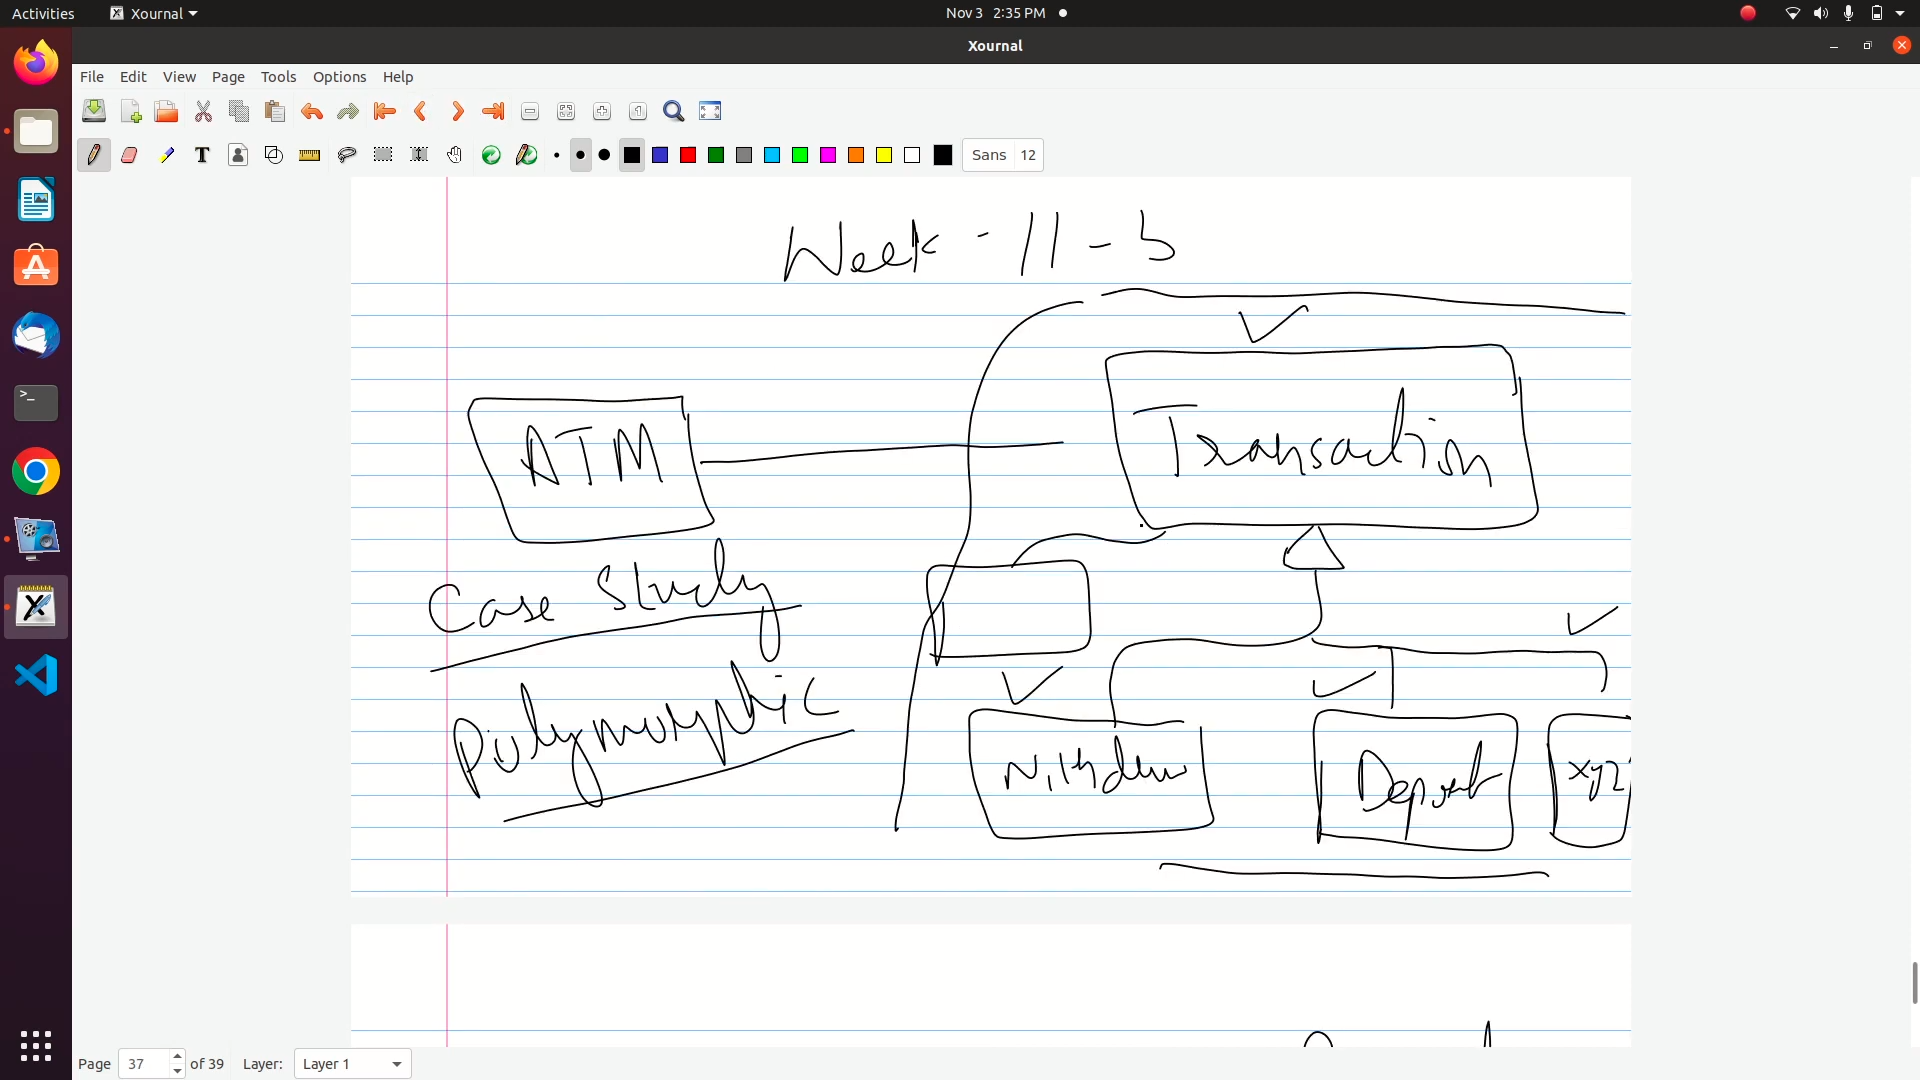 Activities Xournal Nov 3 2:35 PM
Xournal
File Edit View Page Tools Options Help
Sans 12
Week - 11 - 3
Transaction
ATM
Case Study
Polymorphic
Deposit
xyz
Page 37 of 39 Layer: Layer 1